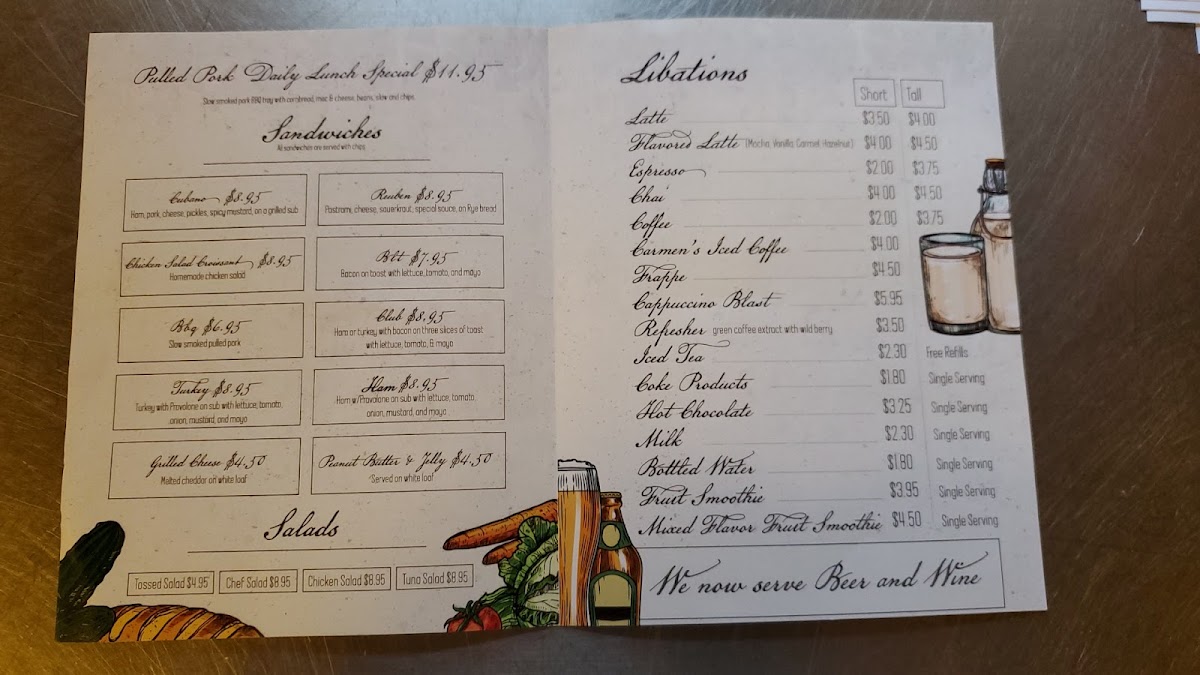 Pulled Pork Daily Lunch Special $11.95
Slow smoked pork BBQ tray with cornbread, mac & cheese, beans, slaw and chips.
Sandwiches
All sandwiches are served with chips
Cubano $8.95
Ham, pork, cheese, pickles, spicy mustard, on a grilled sub
Reuben $8.95
Pastrami, cheese, sauerkraut, special sauce, on Rye bread
Chicken Salad Croissant $8.95
Homemade chicken salad
Blt $7.95
Bacon on toast with lettuce, tomato, and mayo
Bbq $6.95
Slow smoked pulled pork
Club $8.95
Ham or turkey with bacon on three slices of toast
with lettuce, tomato, & mayo
Turkey $8.95
Turkey with Provolone on sub with lettuce, tomato,
onion, mustard, and mayo
Ham $8.95
Ham w/Provolone on sub with lettuce, tomato,
onion, mustard, and mayo
Grilled Cheese $4.50
Melted cheddar on white loaf
Peanut Butter & Jelly $4.50
Served on white loaf
Salads
Tossed Salad $4.95
Chef Salad $8.95
Chicken Salad $8.95
Tuna Salad $8.95
Libations
Short Tall
Latte $3.50 $4.00
Flavored Latte (Mocha, Vanilla, Carmel, Hazelnut) $4.00 $4.50
Espresso $2.00 $3.75
Chai $4.00 $4.50
Coffee $2.00 $3.75
Carmen's Iced Coffee $4.00
Frappe $4.50
Cappuccino Blast $5.95
Refresher green coffee extract with wild berry $3.50
Iced Tea $2.30 Free Refills
Coke Products $1.80 Single Serving
Hot Chocolate $3.25 Single Serving
Milk $2.30 Single Serving
Bottled Water $1.80 Single Serving
Fruit Smoothie $3.95 Single Serving
Mixed Flavor Fruit Smoothie $4.50 Single Serving
We now serve Beer and Wine